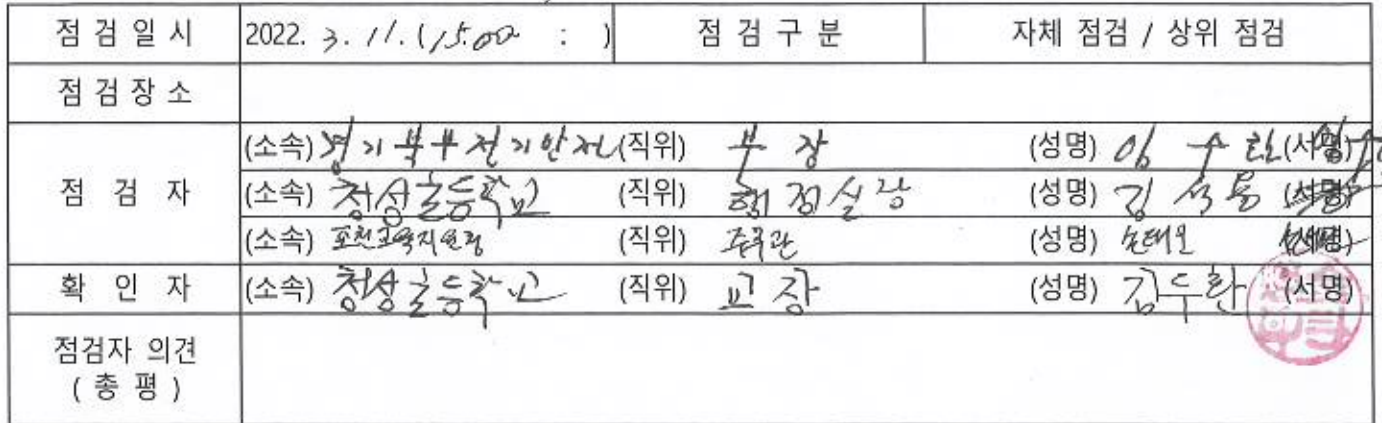 점 검 일 시 2022. 3. 11. (15:00 : ) 점 검 구 분 자체 점검 / 상위 점검
점 검 장 소
점 검 자
(소속) 경기북부전기안전 (직위) 부 장 (성명) 이 (서명)
(소속) 청성초등학교 (직위) 행정실장 (성명) 김 석 용 (서명)
(소속) 포천교육지원청 (직위) 주무관 (성명) (서명)
확 인 자 (소속) 청성초등학교 (직위) 교 장 (성명) 김두환 (서명)
점검자 의견
( 총 평 )